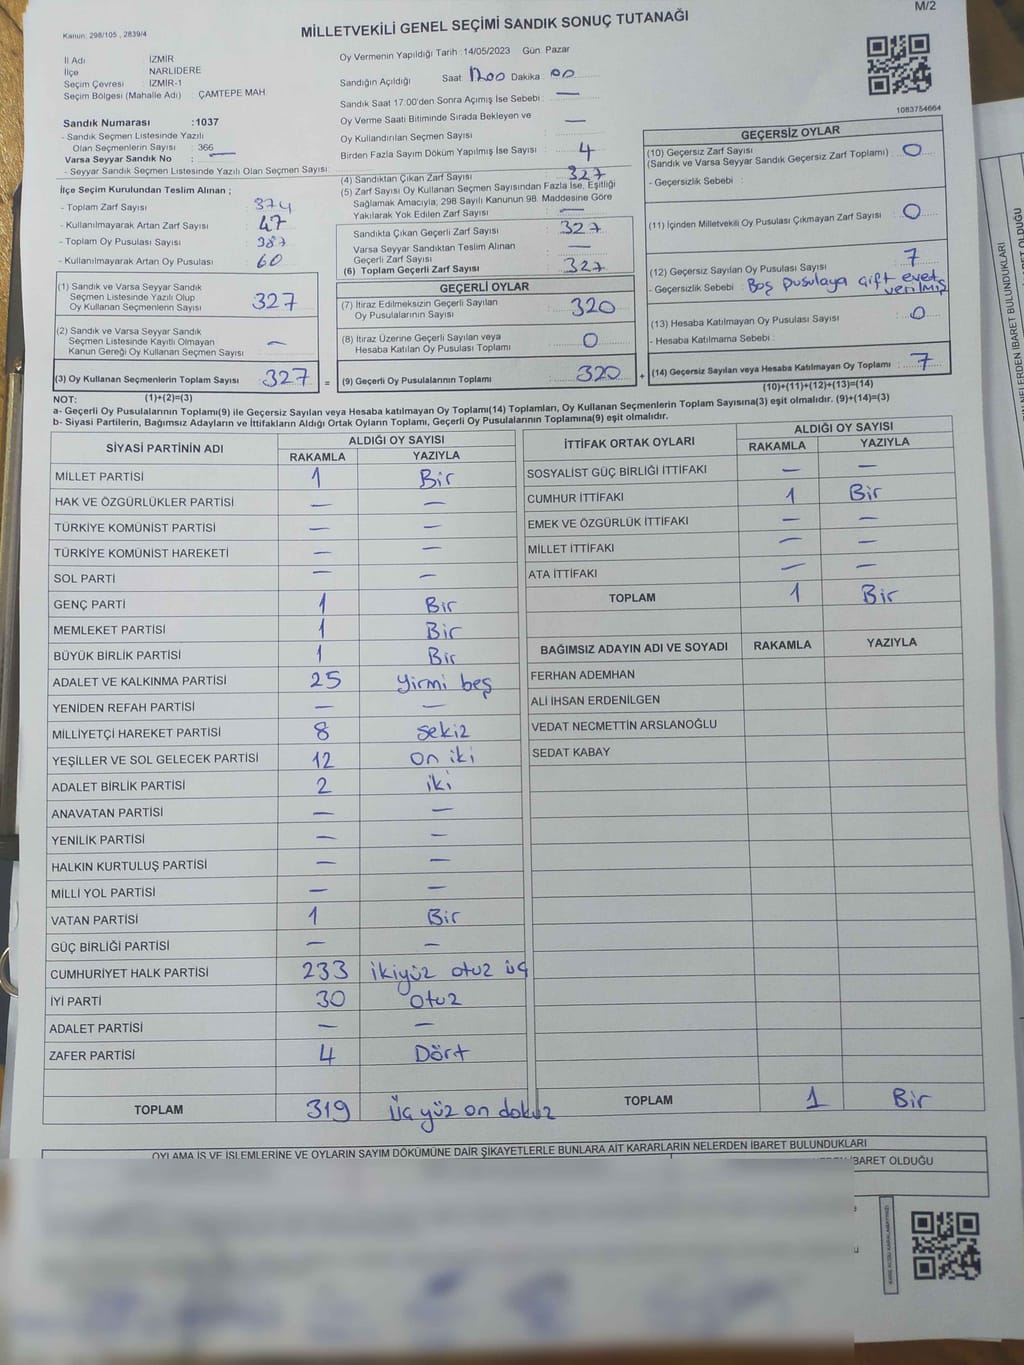 M/2
Kanun: 298/105 , 2839/4
MİLLETVEKİLİ GENEL SEÇİMİ SANDIK SONUÇ TUTANAĞI
İl Adı İZMİR
İlçe NARLIDERE
Seçim Çevresi İZMİR-1
Seçim Bölgesi (Mahalle Adı) : ÇAMTEPE MAH
Sandık Numarası :1037
- Sandık Seçmen Listesinde Yazılı
Olan Seçmenlerin Sayısı : 366
Varsa Seyyar Sandık No : —
- Seyyar Sandık Seçmen Listesinde Yazılı Olan Seçmen Sayısı:
İlçe Seçim Kurulundan Teslim Alınan ;
- Toplam Zarf Sayısı 374
- Kullanılmayarak Artan Zarf Sayısı 47
- Toplam Oy Pusulası Sayısı 387
- Kullanılmayarak Artan Oy Pusulası 60
(1) Sandık ve Varsa Seyyar Sandık
Seçmen Listesinde Yazılı Olup
Oy Kullanan Seçmenlerin Sayısı 327
(2) Sandık ve Varsa Seyyar Sandık
Seçmen Listesinde Kayıtlı Olmayan
Kanun Gereği Oy Kullanan Seçmen Sayısı —
(3) Oy Kullanan Seçmenlerin Toplam Sayısı : 327 =
(1)+(2)=(3)
Oy Vermenin Yapıldığı Tarih :14/05/2023 Gün: Pazar
Sandığın Açıldığı Saat 1700 Dakika : 00
Sandık Saat 17:00'den Sonra Açımış İse Sebebi : —
Oy Verme Saati Bitiminde Sırada Bekleyen ve
Oy Kullandırılan Seçmen Sayısı —
Birden Fazla Sayım Döküm Yapılmış İse Sayısı 4
(4) Sandıktan Çıkan Zarf Sayısı 327
(5) Zarf Sayısı Oy Kullanan Seçmen Sayısından Fazla İse, Eşitliği
Sağlamak Amacıyla; 298 Sayılı Kanunun 98. Maddesine Göre
Yakılarak Yok Edilen Zarf Sayısı —
Sandıkta Çıkan Geçerli Zarf Sayısı 327
Varsa Seyyar Sandıktan Teslim Alınan
Geçerli Zarf Sayısı —
(6) Toplam Geçerli Zarf Sayısı 327
GEÇERLİ OYLAR
(7) İtiraz Edilmeksizin Geçerli Sayılan
Oy Pusulalarının Sayısı 320
(8) İtiraz Üzerine Geçerli Sayılan veya
Hesaba Katılan Oy Pusulası Toplamı 0
(9) Geçerli Oy Pusulalarının Toplamı 320 +
1083754664
GEÇERSİZ OYLAR
(10) Geçersiz Zarf Sayısı
(Sandık ve Varsa Seyyar Sandık Geçersiz Zarf Toplamı) : 0
- Geçersizlik Sebebi :
(11) İçinden Milletvekili Oy Pusulası Çıkmayan Zarf Sayısı 0
(12) Geçersiz Sayılan Oy Pusulası Sayısı 7
- Geçersizlik Sebebi : Boş pusulaya çift evet
verilmiş
(13) Hesaba Katılmayan Oy Pusulası Sayısı 0
- Hesaba Katılmama Sebebi :
(14) Geçersiz Sayılan veya Hesaba Katılmayan Oy Toplamı : 7
(10)+(11)+(12)+(13)=(14)
NOT:
a- Geçerli Oy Pusulalarının Toplamı(9) ile Geçersiz Sayılan veya Hesaba katılmayan Oy Toplamı(14) Toplamları, Oy Kullanan Seçmenlerin Toplam Sayısına(3) eşit olmalıdır. (9)+(14)=(3)
b- Siyasi Partilerin, Bağımsız Adayların ve İttifakların Aldığı Oyların Toplamı, Geçerli Oy Pusulalarının Toplamına(9) eşit olmalıdır.
SİYASİ PARTİNİN ADI ALDIĞI OY SAYISI
RAKAMLA YAZIYLA
MİLLET PARTİSİ 1 Bir
HAK VE ÖZGÜRLÜKLER PARTİSİ — —
TÜRKİYE KOMÜNİST PARTİSİ — —
TÜRKİYE KOMÜNİST HAREKETİ — —
SOL PARTİ — —
GENÇ PARTİ 1 Bir
MEMLEKET PARTİSİ 1 Bir
BÜYÜK BİRLİK PARTİSİ 1 Bir
ADALET VE KALKINMA PARTİSİ 25 Yirmi beş
YENİDEN REFAH PARTİSİ — —
MİLLİYETÇİ HAREKET PARTİSİ 8 sekiz
YEŞİLLER VE SOL GELECEK PARTİSİ 12 On iki
ADALET BİRLİK PARTİSİ 2 iki
ANAVATAN PARTİSİ — —
YENİLİK PARTİSİ — —
HALKIN KURTULUŞ PARTİSİ — —
MİLLİ YOL PARTİSİ — —
VATAN PARTİSİ 1 Bir
GÜÇ BİRLİĞİ PARTİSİ — —
CUMHURİYET HALK PARTİSİ 233 ikiyüz otuz üç
İYİ PARTİ 30 Otuz
ADALET PARTİSİ — —
ZAFER PARTİSİ 4 Dört
TOPLAM 319 Üçyüz on dokuz
İTTİFAK ORTAK OYLARI ALDIĞI OY SAYISI
RAKAMLA YAZIYLA
SOSYALİST GÜÇ BİRLİĞİ İTTİFAKI — —
CUMHUR İTTİFAKI 1 Bir
EMEK VE ÖZGÜRLÜK İTTİFAKI — —
MİLLET İTTİFAKI — —
ATA İTTİFAKI — —
TOPLAM 1 Bir
BAĞIMSIZ ADAYIN ADI VE SOYADI RAKAMLA YAZIYLA
FERHAN ADEMHAN
ALİ İHSAN ERDENİLGEN
VEDAT NECMETTİN ARSLANOĞLU
SEDAT KABAY
TOPLAM 1 Bir
OYLAMA İŞ VE İŞLEMLERİNE VE OYLARIN SAYIM DÖKÜMÜNE DAİR ŞİKAYETLERLE BUNLARA AİT KARARLARIN NELERDEN İBARET BULUNDUKLARI
İBARET OLDUĞU
NELERDEN İBARET BULUNDUKLARI